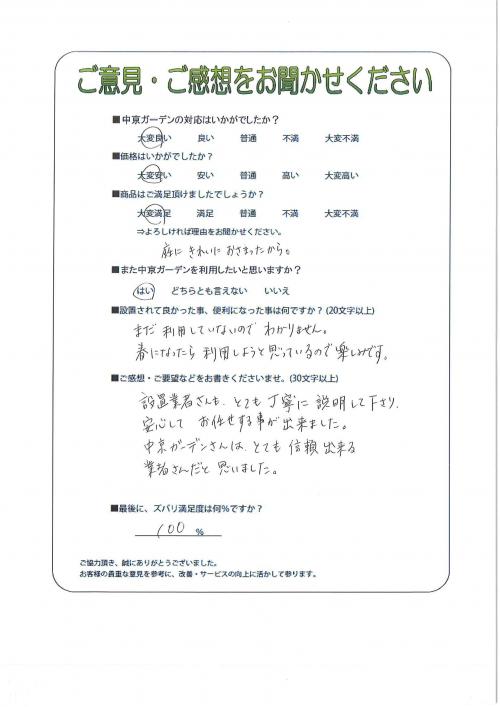 ご意見・ご感想をお聞かせください
■中京ガーデンの対応はいかがでしたか？
大変良い 良い 普通 不満 大変不満
■価格はいかがでしたか？
大変安い 安い 普通 高い 大変高い
■商品はご満足頂けましたでしょうか？
大変満足 満足 普通 不満 大変不満
⇒よろしければ理由をお聞かせください。
庭にきれいにおさまったから。
■また中京ガーデンを利用したいと思いますか？
はい どちらとも言えない いいえ
■設置されて良かった事、便利になった事は何ですか？(20文字以上)
まだ利用していないのでわかりません。
春になったら利用しようと思っているので楽しみです。
■ご感想・ご要望などをお書きくださいませ。(30文字以上)
設置業者さんも、とても丁寧に説明して下さり、
安心してお任せする事が出来ました。
中京ガーデンさんは、とても信頼出来る
業者さんだと思いました。
■最後に、ズバリ満足度は何％ですか？
100 %
ご協力頂き、誠にありがとうございました。
お客様の貴重な意見を参考に、改善・サービスの向上に活かして参ります。